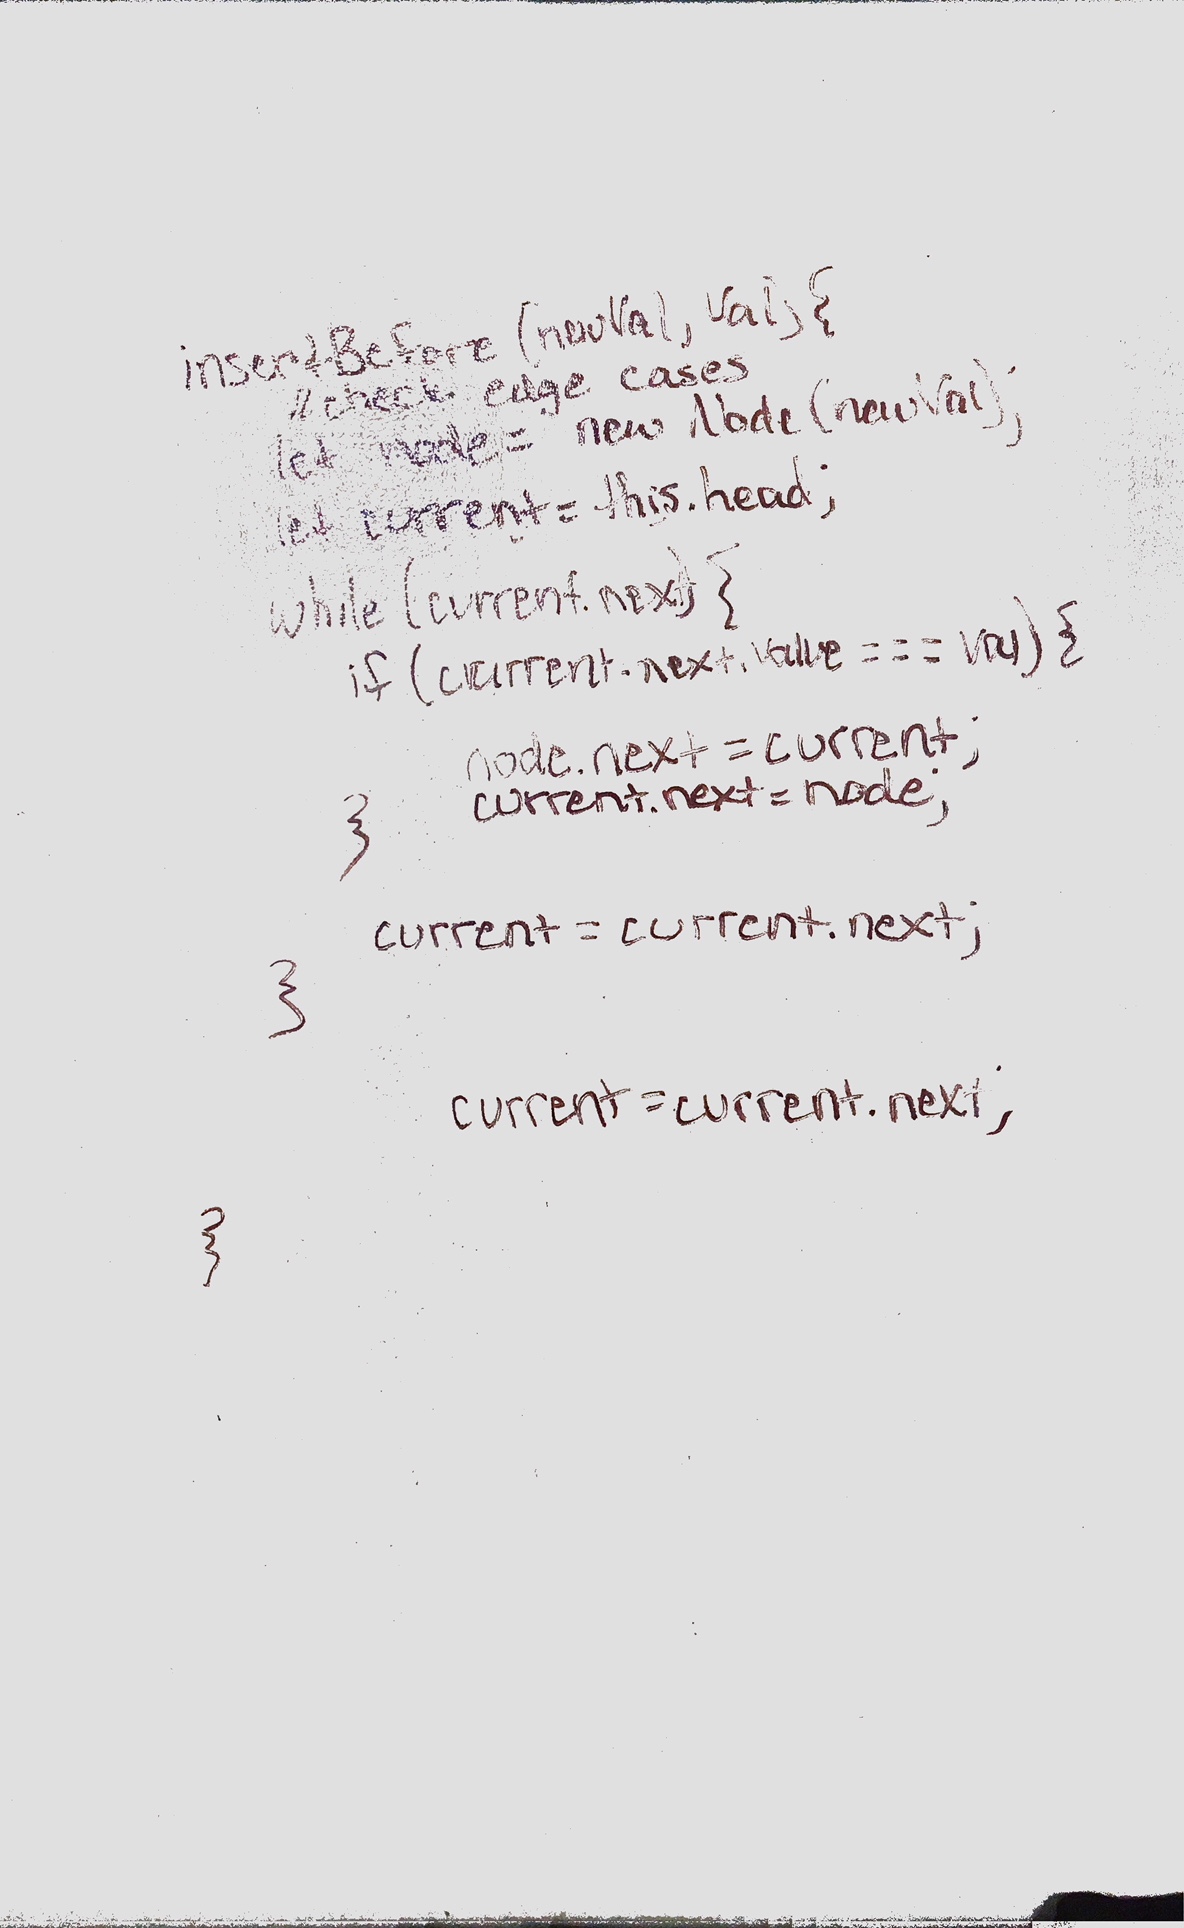 insertBefore (newVal, val) {
// check edge cases
let node = new Node (newVal);
let current = this.head;
while (current.next) {
if (current.next.value === val) {
node.next = current;
current.next = node;
}
current = current.next;
}
current = current.next;
}